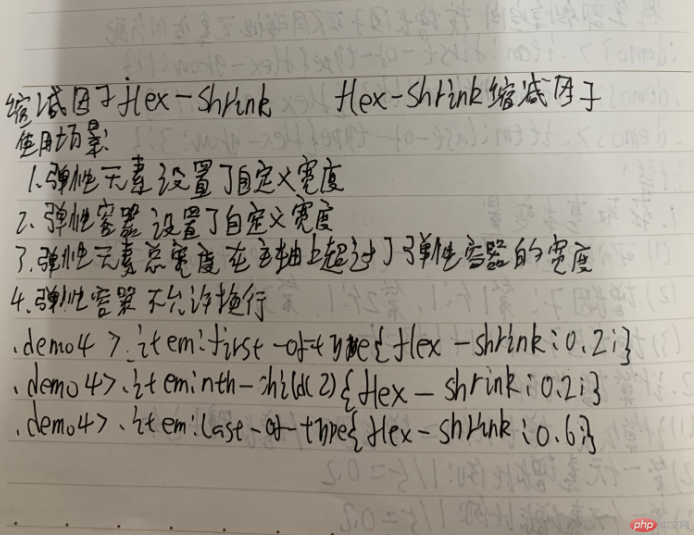 缩减因子flex-shrink flex-shrink缩减因子
使用场景:
1.弹性元素设置了自定义宽度
2.弹性容器设置了自定义宽度
3.弹性元素总宽度在主轴上超过了弹性容器的宽度
4.弹性容器不允许换行
.demo4>.item:first-of-type{flex-shrink:0.2;}
.demo4>.item:nth-child(2){flex-shrink:0.2;}
.demo4>.item:last-of-type{flex-shrink:0.6;}
php中文网